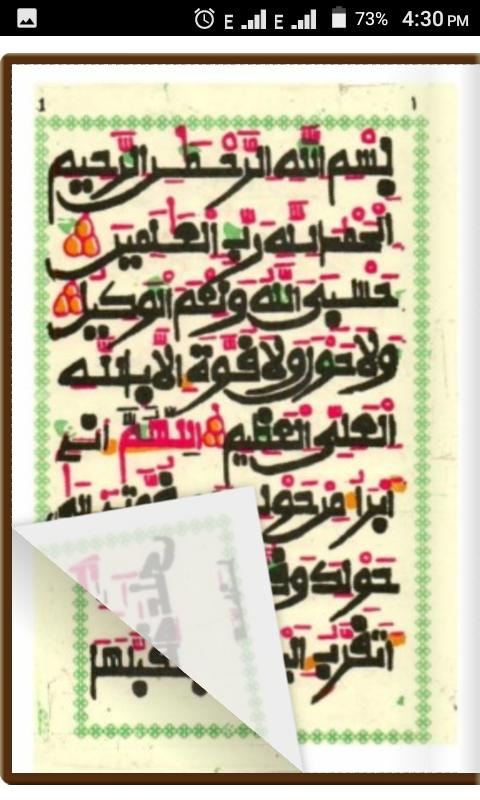 E E 73% 4:30 PM
1 ١
بِسْمِ اللَّهِ الرَّحْمَٰنِ الرَّحِيمِ
الْحَمْدُ لِلَّهِ رَبِّ الْعَٰلَمِينَ
حَسْبِيَ اللَّهُ وَنِعْمَ الْوَكِيلُ
وَلَا حَوْلَ وَلَا قُوَّةَ إِلَّا بِاللَّهِ
الْعَلِيِّ الْعَظِيمِ اللَّهُمَّ إِنِّي
أَبْرَأُ مِنْ حَوْلِي
حَوْلِكَ
أَتَقَرَّبُ